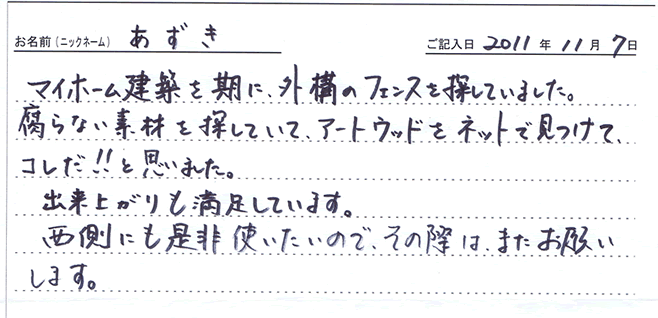 お名前（ニックネーム） あずき ご記入日 2011年 11月 7日
マイホーム建築を期に、外構のフェンスを探していました。
腐らない素材を探していて、アートウッドをネットで見つけて、
コレだ!!と思いました。
出来上がりも満足しています。
西側にも是非使いたいので、その際は、またお願い
します。